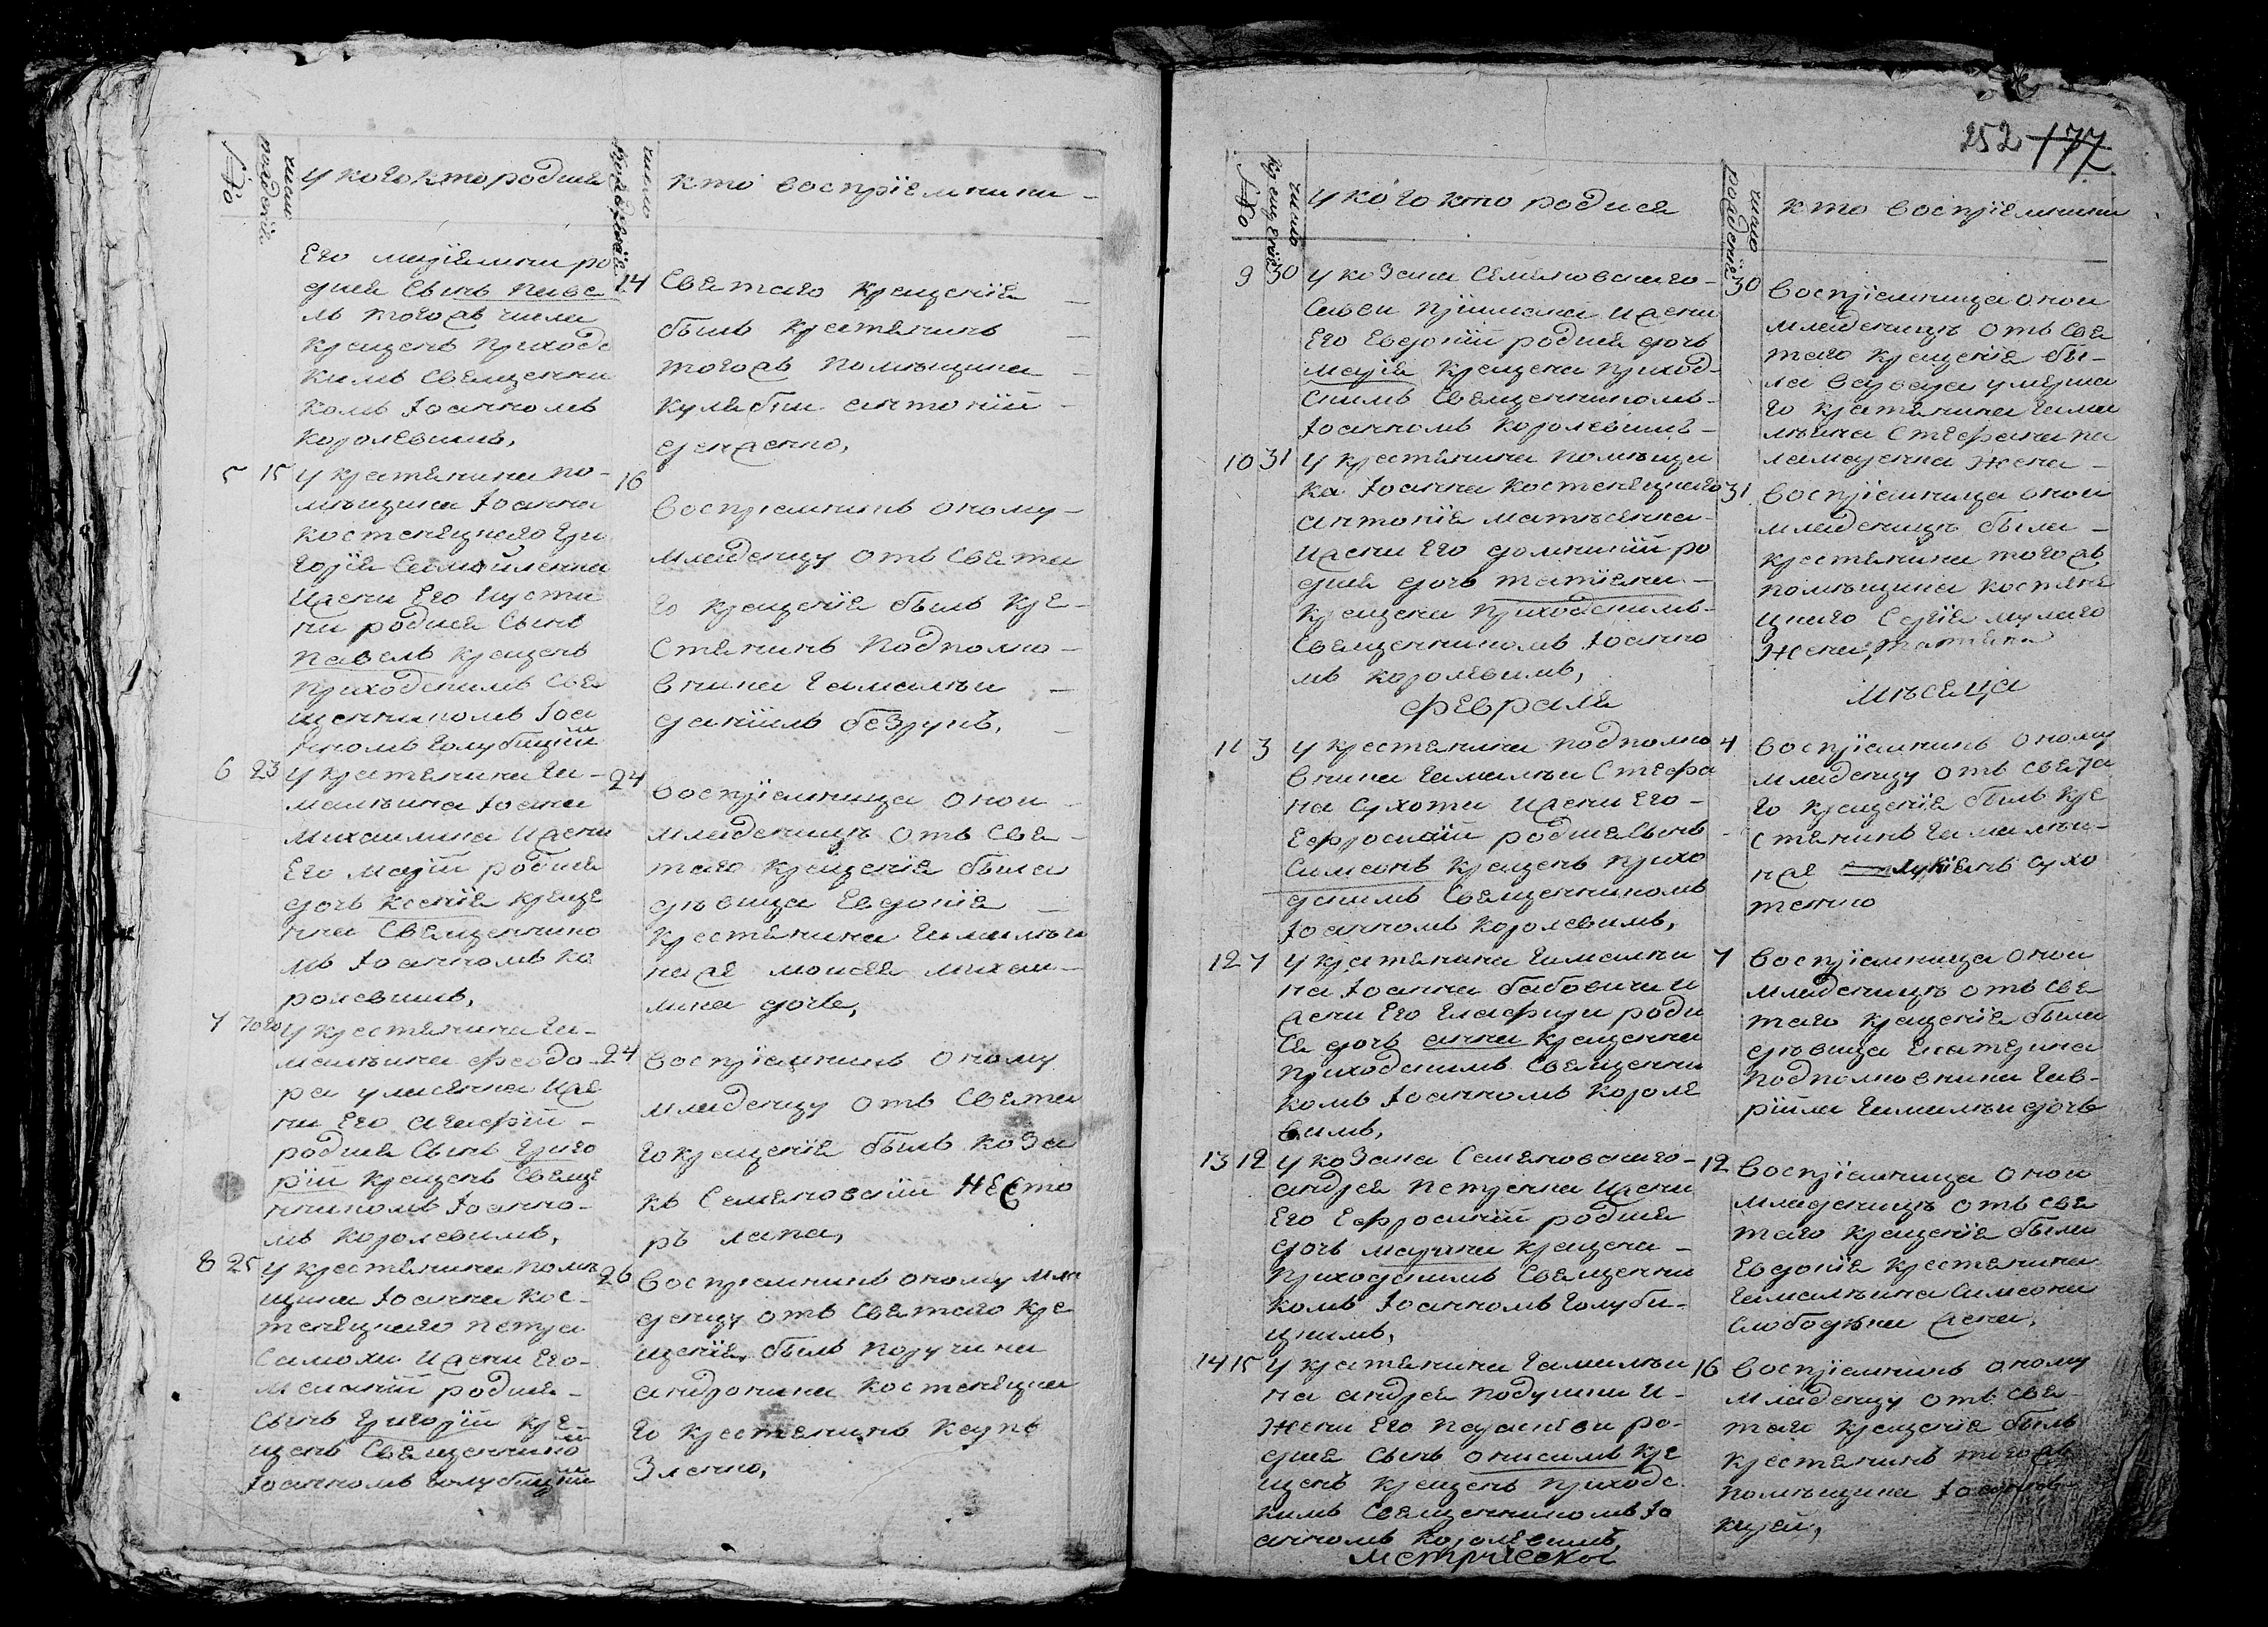 число рождения
у кого кто родися
число крещения
кто восприемники
Его марии родися
сынъ паве
лъ того жъ числа
крещенъ приходс
кимъ священни
комъ Іоанномъ
Королевимъ,
14
святаго крещенія
былъ крестянинъ
того жъ помещика
кулябки антоній
5 15 у крестянина по
мещика Іоанна
костенецкаго гри
горія самойленка
и жени его иусти
ни родися сынъ
павелъ крещенъ
приходскимъ свя
щенникомъ Іоа
нномъ голубицкій
16
воспріемникъ оному
младенцу отъ свята
го крещенія былъ кре
стянинъ подполко
вника гамалъи
даніилъ безрукъ,
6 23 у крестянина га
малъина Іоана
михаилика и жени
его маріи родися
дочь ксенія креще
нна священнико
мъ Іоанномъ ко
ролевимъ,
24
воспріемница оной
младеницъ отъ свя
таго крещенія была
дъвица Евдокія
крестянина гамалъи
на же моисея михаи
лика дочь,
7 того у крестянина га
малъина феодо
ра уласенка и же
ни его агафіи
родися сынъ григо
рій крещенъ свяще
нникомъ Іоанно
мъ Королевимъ,
24
воспріемникъ оному
младенцу отъ свята
го крещенія былъ коза
къ Семяновскій несто
ръ лапа,
8 25 у крестянина помъ
щика Іоанна кос
тенецкаго петра
самохи и жени его
меланіи родися
сынъ григорій кре
щенъ священнико
Іоанномъ голубицкій
26
воспріемникъ оному мла
денцу отъ святаго кре
щенія, былъ поручика
андроника костенецка
го крестянинъ карпъ
зленко,
252 177
число крещенія
у кого кто родися
число рожденія
кто воспріемники
9 30 у козака Семяновскаго
савви приймака и жени
его Евдокіи родися дочь
марія крещена приход
скимъ священникомъ
Іоанномъ Королевимъ
30
воспріемница оной
младеницъ отъ свя
таго крещенія бы
ла варвара умерша
го крестянина гама
лъина стефана па
ламаренка жена
10 31 у крестянина помъщи
ка Іоанна костенецкаго
антонія матвъенка
и жени его домникіи ро
дися дочь татіяна
крещена приходскимъ
священникомъ Іоанно
мъ королевимъ,
31
воспріемница оной
младеницъ была
крестянина того жъ
помъщика костене
цкаго сергія мулаго
жена, татіяна
февраля
мъсяца
11 3 у крестянина подполко
вника гамалъи стефа
на сухоти и жени его
Ефросиніи родися сынъ
симеонъ крещенъ прихо
дскимъ священникомъ
Іоанномъ Королевимъ,
4
воспріемникъ оному
младенцу отъ свята
го крещенія былъ кре
стянинъ гамалъи
на же лукіянъ сухо
тенко
12 7 у крестянина гамалъи
на Іоанна бабовича и
жени его гласфири роди
ся дочь анна крещенна
приходскимъ священни
комъ Іоанномъ Короле
вимъ,
7
воспріемница оной
младеницъ отъ свя
таго крещенія была
дъвица Екатерина
подполковника гав
ріила гамалъи дочь
13 12 у козака Семяновскаго
андрея петренка и жени
его Ефросиніи родися
дочь марина крещена
приходскимъ священни
комъ Іоанномъ голуби
цкимъ,
12
воспріемница оной
младеницъ отъ свя
таго крещенія была
Евдокія крестянина
гамалъина симеона
слободяника жена,
14 15 у крестянина гамалъи
на андрея подушки и
жени его параскеви ро
дися сынъ онисимъ кре
щенъ крещенъ приходс
кимъ священникомъ Іо
анномъ королевимъ,
16
воспріемникъ оному
младенцу отъ свя
таго крещенія былъ
крестянинъ того жъ
помъщика
метрческой